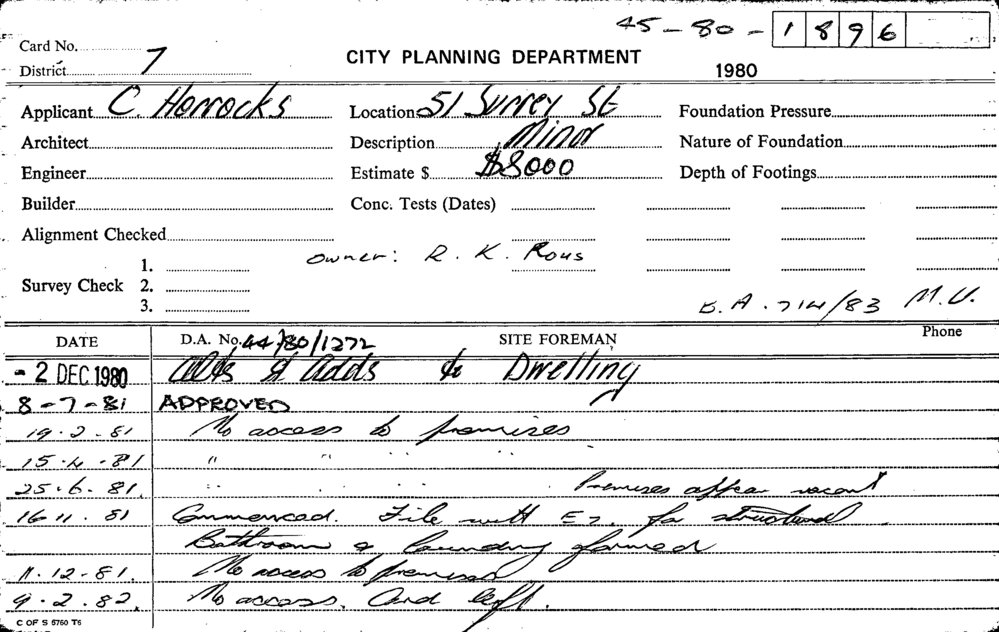 45-80-1896
Card No.
District 7
CITY PLANNING DEPARTMENT
1980
Applicant C. Horrocks Location 51 Surrey St Foundation Pressure
Architect Description Minor Nature of Foundation
Engineer Estimate $ $8000 Depth of Footings
Builder Conc. Tests (Dates)
Alignment Checked
Owner: R. K. Rous
Survey Check 1. 2. 3.
B.A. 714/83 M.U.
DATE D.A. No. 44/80/1272 SITE FOREMAN Phone
- 2 DEC 1980 Alts & Adds to Dwelling
8-7-81 APPROVED
19.2.81 No access to premises
15.4.81 " " " "
25.6.81. " " " " Premises appear vacant
16 11 81 Commenced. File with E2. for structural
Bathroom & laundry formed
11.12.81. No access to premises
9.2.82. No access. Card left.
C OF S 5760 T6